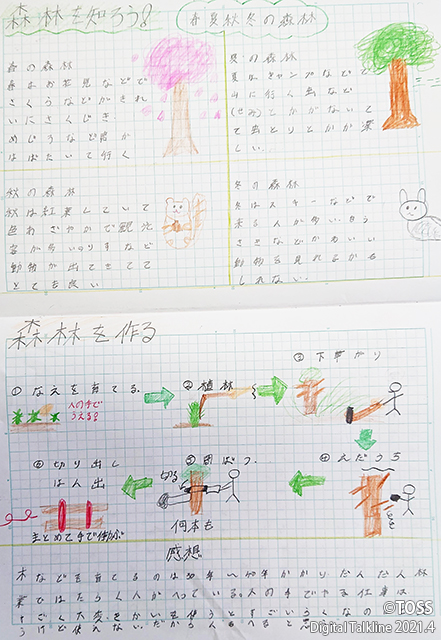 森林を知ろう!
春夏秋冬の森林
春の森林
春はお花見などで
さくらなどがきれ
いにさくじき
めじろなど鳥が
はばたいて行く
夏の森林
夏はキャンプなどで
山に行く虫など
(せみ)とかがないて
て虫とりとかが楽
しい.
秋の森林
秋は紅葉していて
色あざやかで観光
客が多いのりすなど
動物が出てきてて
とても良い
冬の森林
冬はスキーなどで
来る人が多い
などかわいい
動物も見れるかも
しれない.
森林を作る
①なえを育てる.
人の手で
うえる!
②植林
③下草がり
④えだうち
⑤間ばつ.
切る
何本も
⑥切り出し
は人出
まとめて手で働ぶ
感想
木などを育てるのは50年〜 年かかりだんだん林
業ではたらく人がへっている.人の手でやる仕事は
すごく大変
©TOSS
Digital Talkline 2021.4